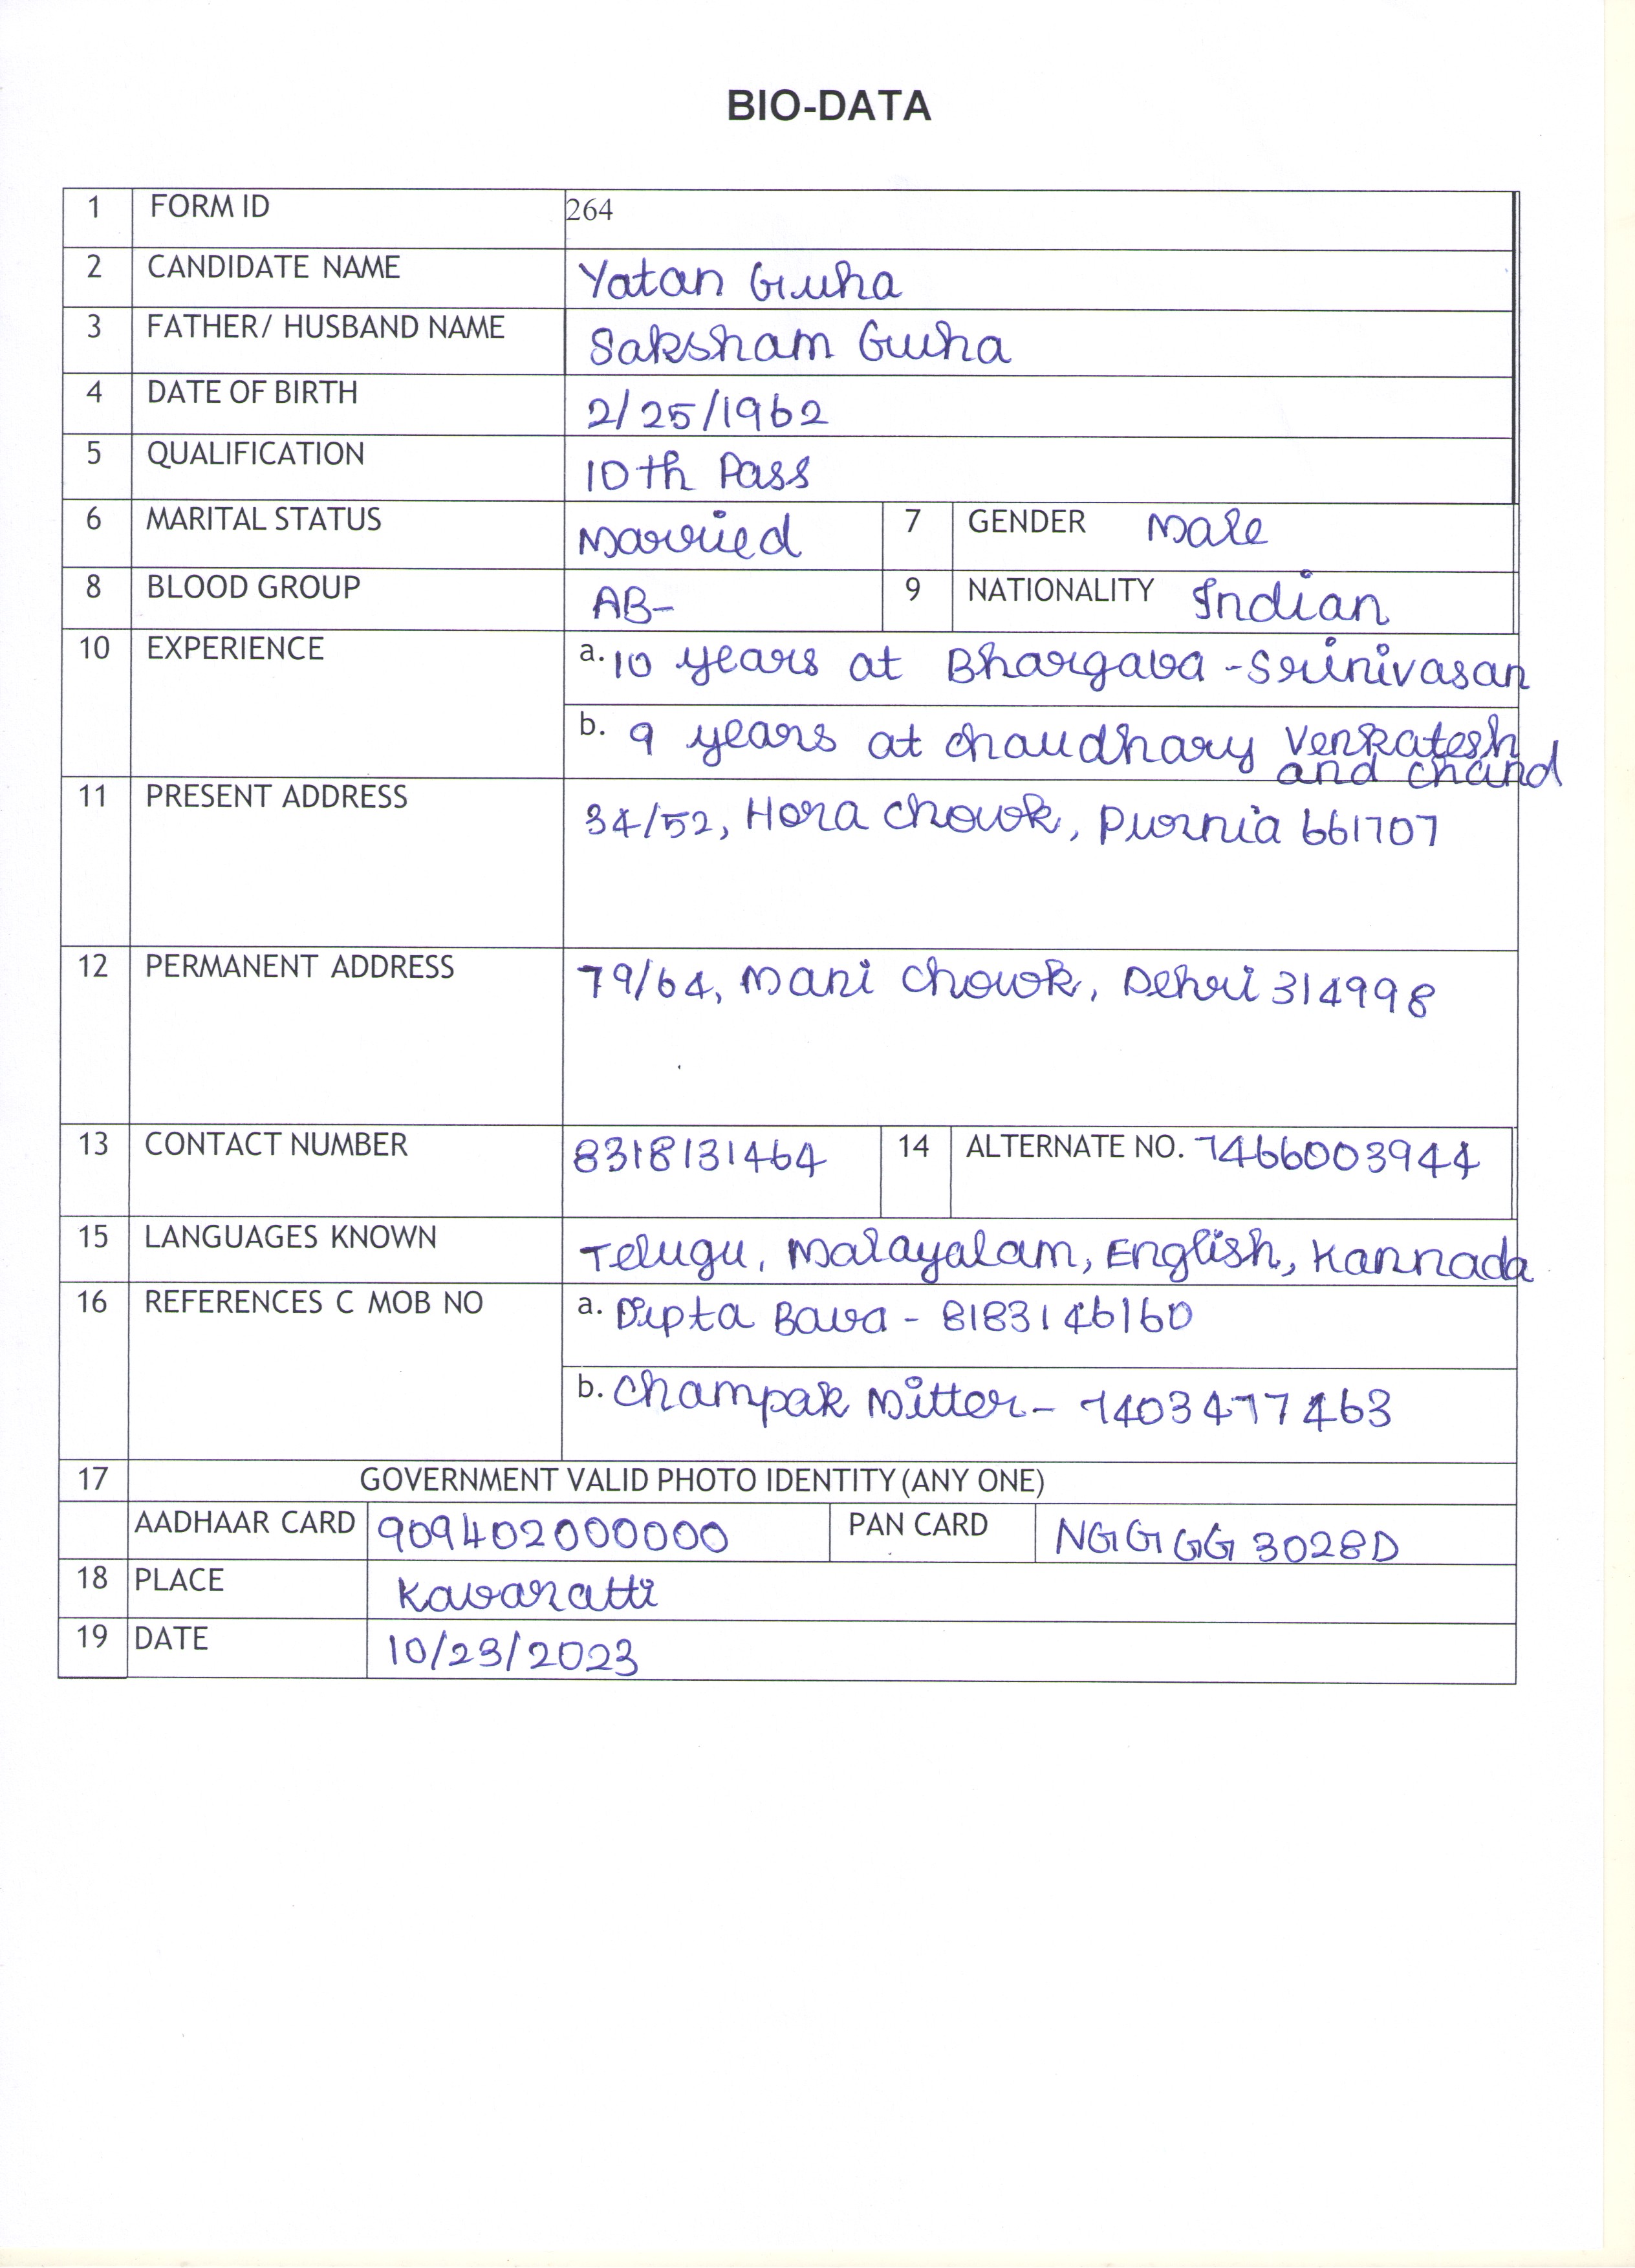 BIO-DATA
1 FORM ID 264
2 CANDIDATE NAME Yatan Guha
3 FATHER/ HUSBAND NAME Saksham Guha
4 DATE OF BIRTH 2/25/1962
5 QUALIFICATION 10th Pass
6 MARITAL STATUS Married 7 GENDER Male
8 BLOOD GROUP AB- 9 NATIONALITY Indian
10 EXPERIENCE a. 10 years at Bhargava - Srinivasan
b. 9 years at chaudhary Venkatesh
and chand
11 PRESENT ADDRESS 34/52, Hora Chowk, Purnia 661707
12 PERMANENT ADDRESS 79/64, Mani Chowk, Dehri 314998
13 CONTACT NUMBER 8318131464 14 ALTERNATE NO. 7466003944
15 LANGUAGES KNOWN Telugu, Malayalam, English, Kannada
16 REFERENCES C MOB NO a. Dipta Bava - 8183146160
b. Champak Mitter - 7403477463
17 GOVERNMENT VALID PHOTO IDENTITY (ANY ONE)
AADHAAR CARD 909402000000 PAN CARD NGGGG3028D
18 PLACE Kavaratti
19 DATE 10/23/2023